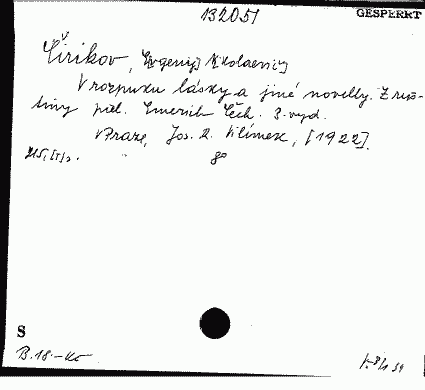 132051
GESPERRT
Čirikov, Evgenij Nikolaevič
V rozpuku lásky a jiné novelly. Z ruš-
tiny přel. Emerich Čech. 3. vyd.
v Praze, Jos. R. Vilímek, [1922].
8°
S
B. 18.- Kč